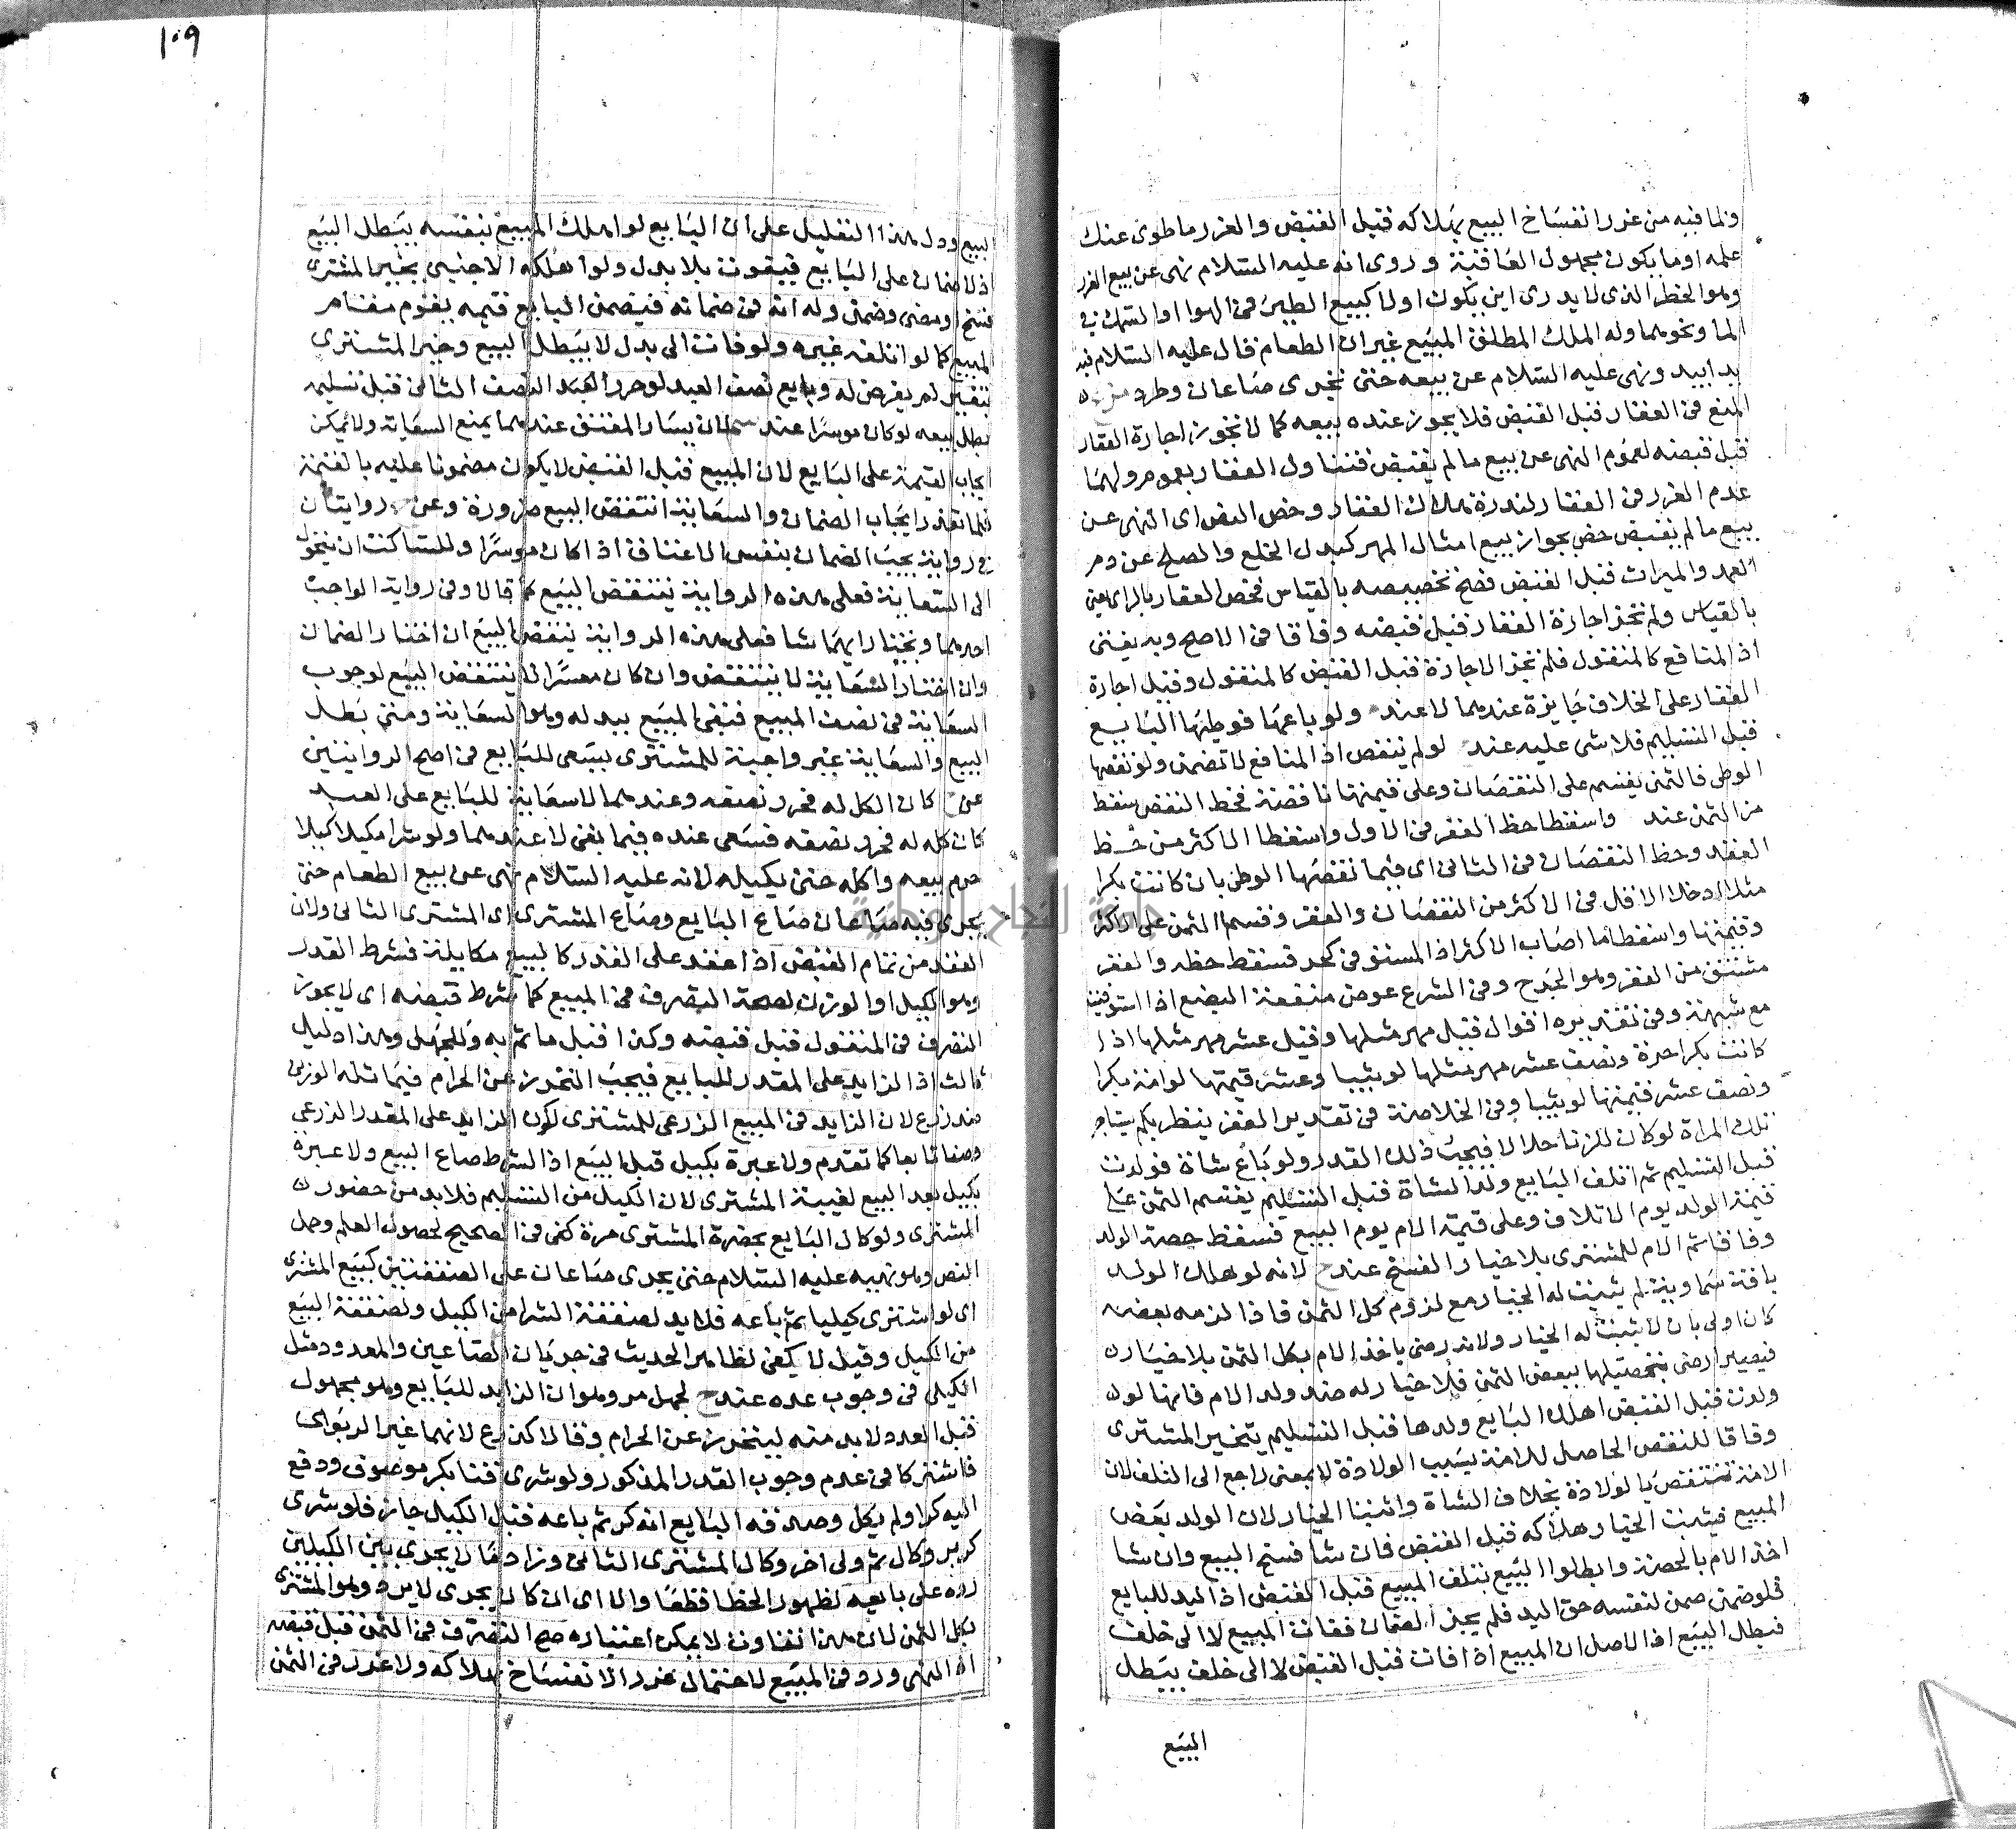 ولما فيه من غرر انفساخ البيع بهلاكه قبل القبض والغرر ما طوى عنك
علمه او ما يكون مجهول العاقبة وروى انه عليه السلام نهى عن بيع الغرر
وهو الخطر الذى لا يدرى اين يكون اولا كبيع الطير فى الهوا والسمك فى
الما ونحوهما وله الملك المطلق المبيع غير ان الطعام قال عليه السلام فيه
يدا بيد ونهى عليه السلام عن بيعه حتى يجرى صاعان وطرد
المنع فى العقار قبل القبض فلا يجوز عنده بيعه كما لا تجوز اجارة العقار
قبل قبضه لعموم النهى عن بيع ما لم يقبض فتناول العقار بعمومه ولهما
عدم الغرر فى العقار لندرة هلاك العقار وخص النص اى النهى عن
بيع ما لم يقبض خص بجواز بيع امثال المهر كبدل الخلع والصلح عن دم
العمد والميراث قبل القبض فصح تخصيصه بالقياس فخص العقار بالراى اعنى
بالقياس ولم تجز اجارة العقار قبل قبضه وفاقا فى الاصح وبه يفتى
اذ المنافع كالمنقول فلم تجز الاجازة قبل القبض كالمنقول وقيل اجارة
العقار على الخلاف جايزة عندهما لا عند ولو باعها فوطئها البايع
قبل التسليم فلا شى عليه عند لو لم ينقص اذ المنافع لا تضمن ولو نقصها
الوطى فالثمن يقسم على النقصان وعلى قيمتها ناقصة فحط النقص يسقط
من الثمن عند واسقطا حظ العقر فى الاول واسقطا الاكثر من حظ
العقد وحظ النقصان فى الثانى اى فيما نقصها الوطى بان كانت بكرا
مثلا ادخلا الاقل فى الاكثر من النقصان والعقر وقسم الثمن على الاكثر
وقيمتها واسقطا ما اصاب الاكثر اذ المستوفى كجزء فسقط حظه والعقر
مشتق من العقر وهو الجرح وفى الشرع عوض منفعة البضع اذا استوفيت
مع شبهة وفى تقديره اقوال قيل مهر مثلها وقيل عشر مهر مثلها اذا
كانت بكرا حرة ونصف عشر مهر مثلها لو ثيبا وعشر قيمتها لو امة بكرا
ونصف عشر قيمتها لو ثيبا وفى الخلاصة فى تقدير العقر ينظر بكم يستاجر
تلك المراة لو كان الزنا حلالا فيجب ذلك القدر ولو باع شاة فولدت
قبل التسليم ثم اتلف البايع ولد الشاة قبل التسليم يقسم الثمن على
قيمة الولد يوم الاتلاف وعلى قيمة الام يوم البيع فسقط حصة الولد
وفاقا ثم الام للمشترى بلا خيار الفسخ عندح لانه لو هلك الولد
بافة سماوية لم يثبت له الخيار مع لزوم كل الثمن فاذا لزمه بعضه
كان اولى بان لا يثبت له الخيار ولانه رضى باخذ الام بكل الثمن بلا خيار
فيصير ارضى بتحصيلها ببعض الثمن فلا خيار له ضد ولد الام فانها لو
ولدت قبل القبض اهلك البايع ولدها قبل التسليم يتخير المشترى
وفاقا للنقص الحاصل للامة بسبب الولادة لا بمعنى راجع الى التلف لان
الامة تنتقص بالولادة بخلاف الشاة واثبتا الخيار لان الولد بعض
المبيع فيثبت الخيار هلاكه قبل القبض فان شا فسخ البيع وان شا
اخذ الام بالحصة وابطلوا البيع بتلف المبيع قبل القبض اذ اليد للبايع
فلو ضمن ضمن لنفسه حق اليد فلم يجز الضمان ففات المبيع لا الى خلف
فبطل البيع اذ الاصل ان المبيع اذا فات قبل القبض لا الى خلف يبطل
البيع
١٠٩
البيع ودل هذا التعليل على ان البايع لو اهلك المبيع بنفسه يبطل البيع
اذ لا ضمان على البايع فيفوت بلا بدل ولو اهلكه الاجنبى يخير المشترى
فسخ او مضى وضمن وله انه فى ضمانه فيضمن البايع قيمه يقوم مقام
المبيع كما لو اتلفه غيره ولو فات الى بدل لا يبطل البيع وخير المشترى
بتغير لم يفرض له وبايع نصف العبد لو حرر العبد النصف الثانى قبل تسليمه
بطل بيعه لو كان موسرا عند لان يسار المعتق عندهما يمنع السعاية ولا يمكن
ايجاب القيمة على البايع لان المبيع قبل القبض لا يكون مضمونا عليه بالقيمة
فلما تعذر ايجاب الضمان والسعاية انتقض البيع ضرورة وعن روايتان
فى رواية يجب الضمان بنفس الاعتاق اذا كان موسرا وللساكت ان يتحول
الى السعاية فعلى هذه الرواية ينتقض البيع كما قالا وفى رواية الواجب
احدهما ويختار ايهما شا فعلى هذه الرواية ينتقض البيع ان اختار الضمان
وان اختار السعاية لا ينتقض وان كان معسرا لا ينتقض البيع لوجوب
السعاية فى نصف المبيع فبقى المبيع ببدله وهو السعاية ومتى بطل
البيع والسعاية غير واجبة للمشترى يسعى للبايع فى اصح الروايتين
عن كان الكل له فحرر نصفه وعندهما لا سعاية للبايع على العبد
كان كله له فحرر نصفه فسعى عنده فيما بقى لا عندهما ولو شرا مكيلا كيلا
حرم بيعه واكله حتى يكيله لانه عليه السلام نهى عن بيع الطعام حتى
يجرى فيه صاعان صاع البايع وصاع المشترى اى المشترى الثانى ولان
العقد من تمام القبض اذا عقد على القدر كالبيع مكايلة فشرط القدر
وهو الكيل او الوزن لصحة التصرف فى المبيع كما شرط قبضه اى لا يجوز
التصرف فى المنقول قبل قبضه وكذا قبل ما تم به وللجهل وهذا دليل
ثالث اذ الزايد على المقدر للبايع فيجب التحرز عن الحرام فيماثله الوزنى
ضد زرع لان الزايد فى المبيع الذرعى للمشترى لكون الزايد على المقدر الذرعى
وصفا تابعا كما تقدم ولا عبرة بكيل قبل البيع اذ الشرط صاع البيع ولا عبرة
بكيل بعد البيع لغيبة المشترى لان الكيل من التسليم فلا بد من حضور
المشترى ولو كال البايع بحضرة المشترى مرة كفى فى الصحيح لحصول العلم وحمل
النص وهو نهيه عليه السلام حتى يجرى صاعان على الصفقتين كبيع المشترى
اى لو اشترى كيليا ثم باعه فلا بد لصفقة الشرا من الكيل ولصفقة البيع
من الكيل وقيل لا يكفى لظاهر الحديث فى جريان الصاعين والمعدود مثل
الكيلى فى وجوب عده عندح لجهل مر وهو ان الزايد للبايع وهو مجهول
قبل العدد لا بد منه ليتحرز عن الحرام وقالا كذرع لانهما غير الربوايا
فاشتركا فى عدم وجوب القدر المذكور ولو شرى قنا بكر موصوف ودفع
اليه كرا ولم يكل وصدقه البايع انه كر ثم باعه قبل الكيل جاز فلو شرى
كر بر وكال ثم ولى اخر وكال المشترى الثانى وزاد قفا لا يجرى بين الكيلين
رده على بايعه لظهور الخطا قطعا والا اى ان كان يجرى لا يرده وهو المشترى
بكل الثمن لان هذا تفاوت لا يمكن اعتباره صح التصرف فى الثمن قبل قبضه
اذ النهى ورد فى المبيع لاحتمال غرر الانفساخ بهلاكه ولا غرر فى الثمن